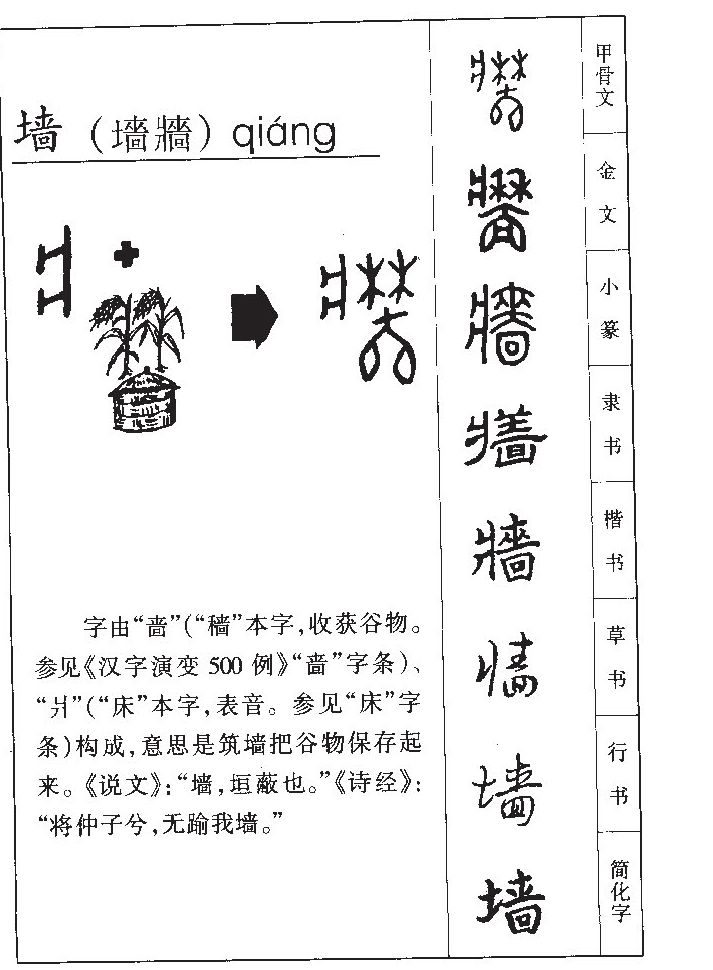 墙（墻牆）qiáng
字由“啬”（“穑”本字，收获谷物。
参见《汉字演变500例》“啬”字条）、
“爿”（“床”本字，表音。参见“床”字
条）构成，意思是筑墙把谷物保存起
来。《说文》：“墙，垣蔽也。”《诗经》：
“将仲子兮，无踰我墙。”
甲骨文
金文
小篆
隶书
牆
楷书
草书
墙
行书
墙
简化字